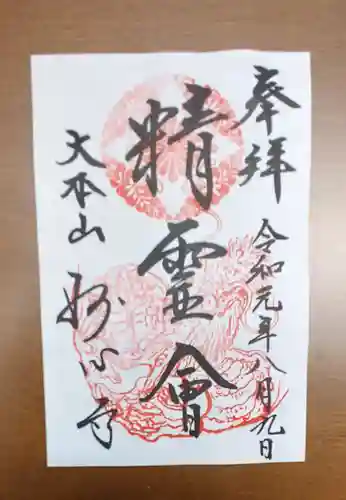 奉拝
令和元年八月九日
精霊會
大本山
妙心寺